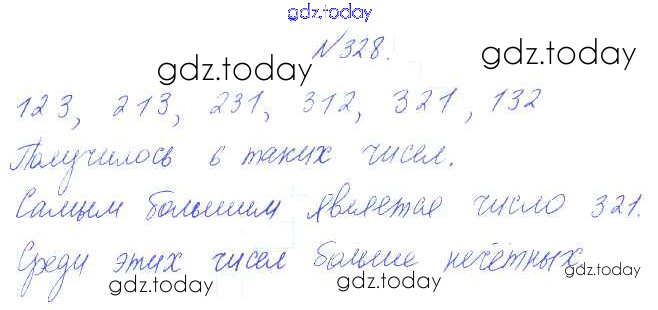 gdz.today
№328.
gdz.today gdz.today
123, 213, 231, 312, 321, 132
Получилось 6 таких чисел.
Самым большим является число 321.
Среди этих чисел больше нечётных
gdz.today gdz.today gdz.today